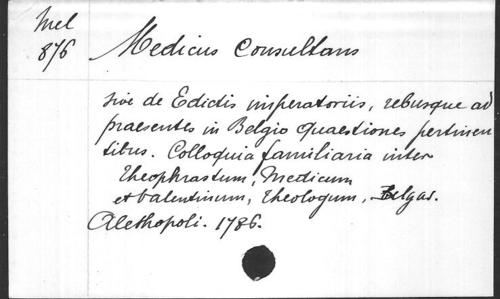 Mel
876
Medicus Consultans
sive de Edictis imperatoriis, rebusque ad
praesentes in Belgio quaestiones pertinen
tibus. Colloquia familiaria inter
Theophrastum, Medicum
et Valentinum, Theologum, Belgas.
Alethopoli. 1786.